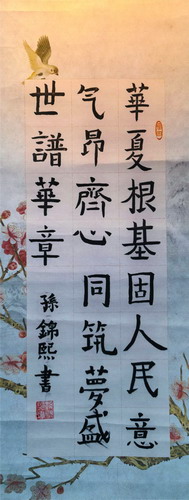 華夏根基固人民意
气昂齊心同筑夢盛
世譜華章
孫錦熙書